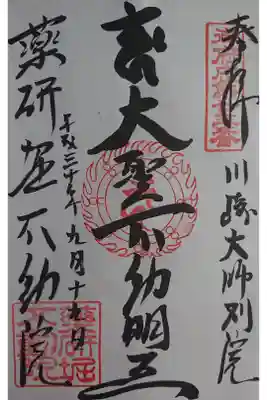 奉拝
川崎大師別院
大聖不動明王
平成三十年九月十九日
薬研堀不動院
薬研堀
不動院